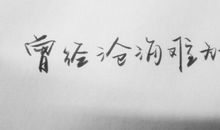 曾经沧海难